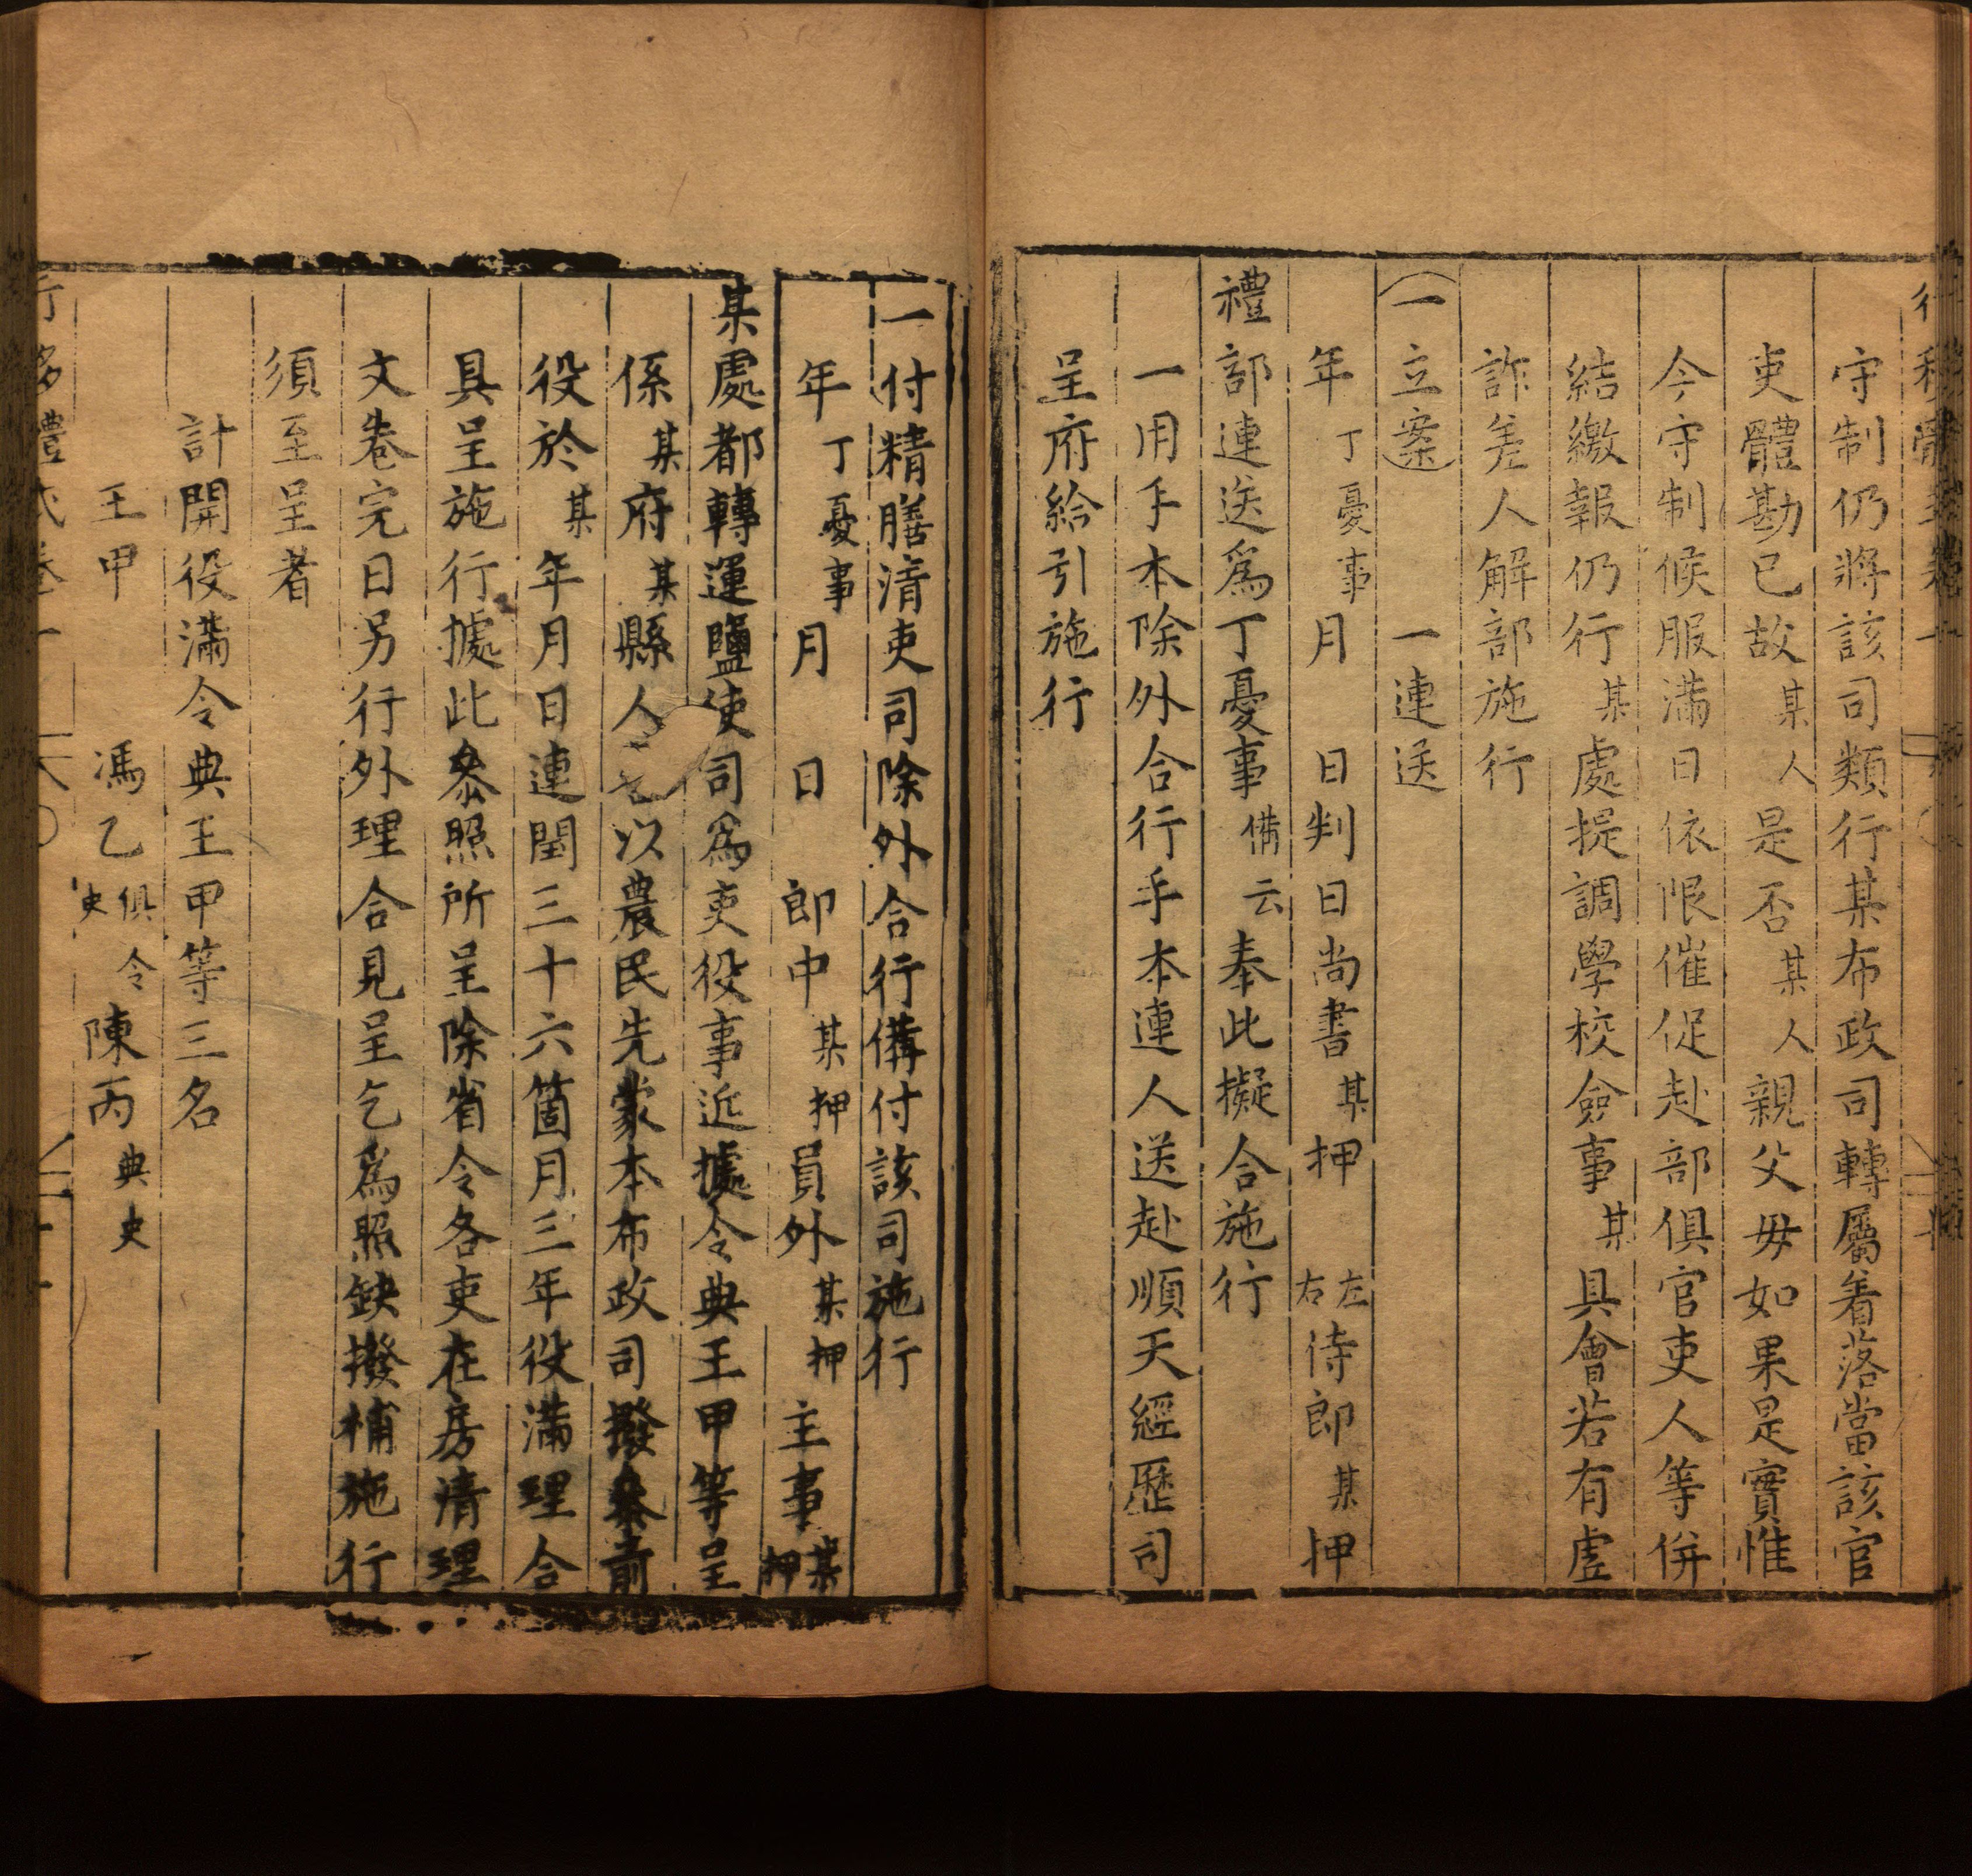 守制仍將該司類行某布政司轉屬着落當該官
吏體勘已故某人是否某人親父毋如果是實惟
今守制候服滿日依限催促赴部俱官吏人等併
結繳報仍行某處提調學校僉事某具會若有虛
詐差人解部施行
一立案 一連送
年丁憂事月 日判日尚書某押 左右侍郎某押
禮部連送爲丁憂事備云奉此擬合施行
一用手本除外合行手本連人送赴順天經歷司
呈府給引施行
一付精膳清吏司除外合行備付該司施行
年丁憂事月 日 郎中某押員外某押主事某押
某處都轉運鹽使司爲吏役事近據令典王甲等呈
係某府某縣人以農民先蒙本布政司撥叅前
役於某年月日連閏三十六箇月三年役滿理合
具呈施行據此叅照所呈除省令各吏在房清理
文卷完日另行外理合見呈乞爲照缺撥補施行
須至呈者
計開役滿令典王甲等三名
王甲 馮乙俱令史陳丙典史
行移體式卷一